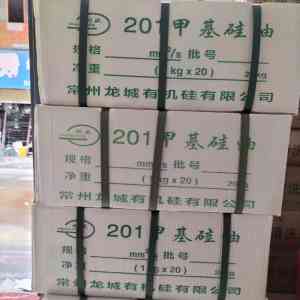 201甲基硅油
规格 mm²/s 批号
净重 (1kg x 20) 20kg
常州龙城有机硅有限公司
201甲基硅油
规格 mm²/s 批号
净重 (1kg x 20) 20kg
常州龙城有机硅有限公司
201甲基硅油
规格 mm²/s 批号
净重 (1kg x 20) 20kg
常州龙城有机硅有限公司